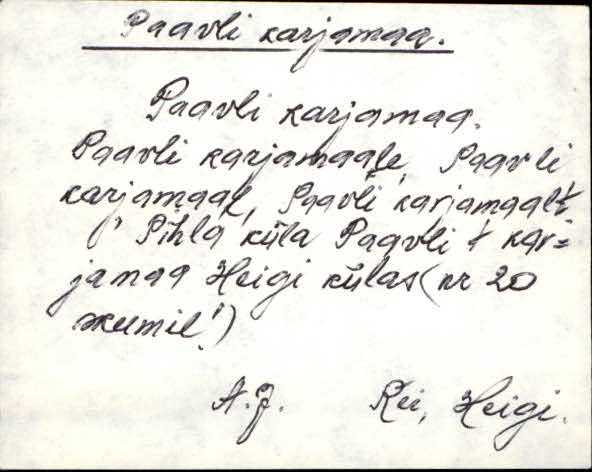 Paavli karjamaa.
Paavli karjamaa.
Paavli karjamaale, Paavli
karjamaal, Paavli karjamaalt.
Pihla küla Paavli kar=
jamaa Heigi külas (nr 20
skeemil!)
A.J. Rei, Heigi.